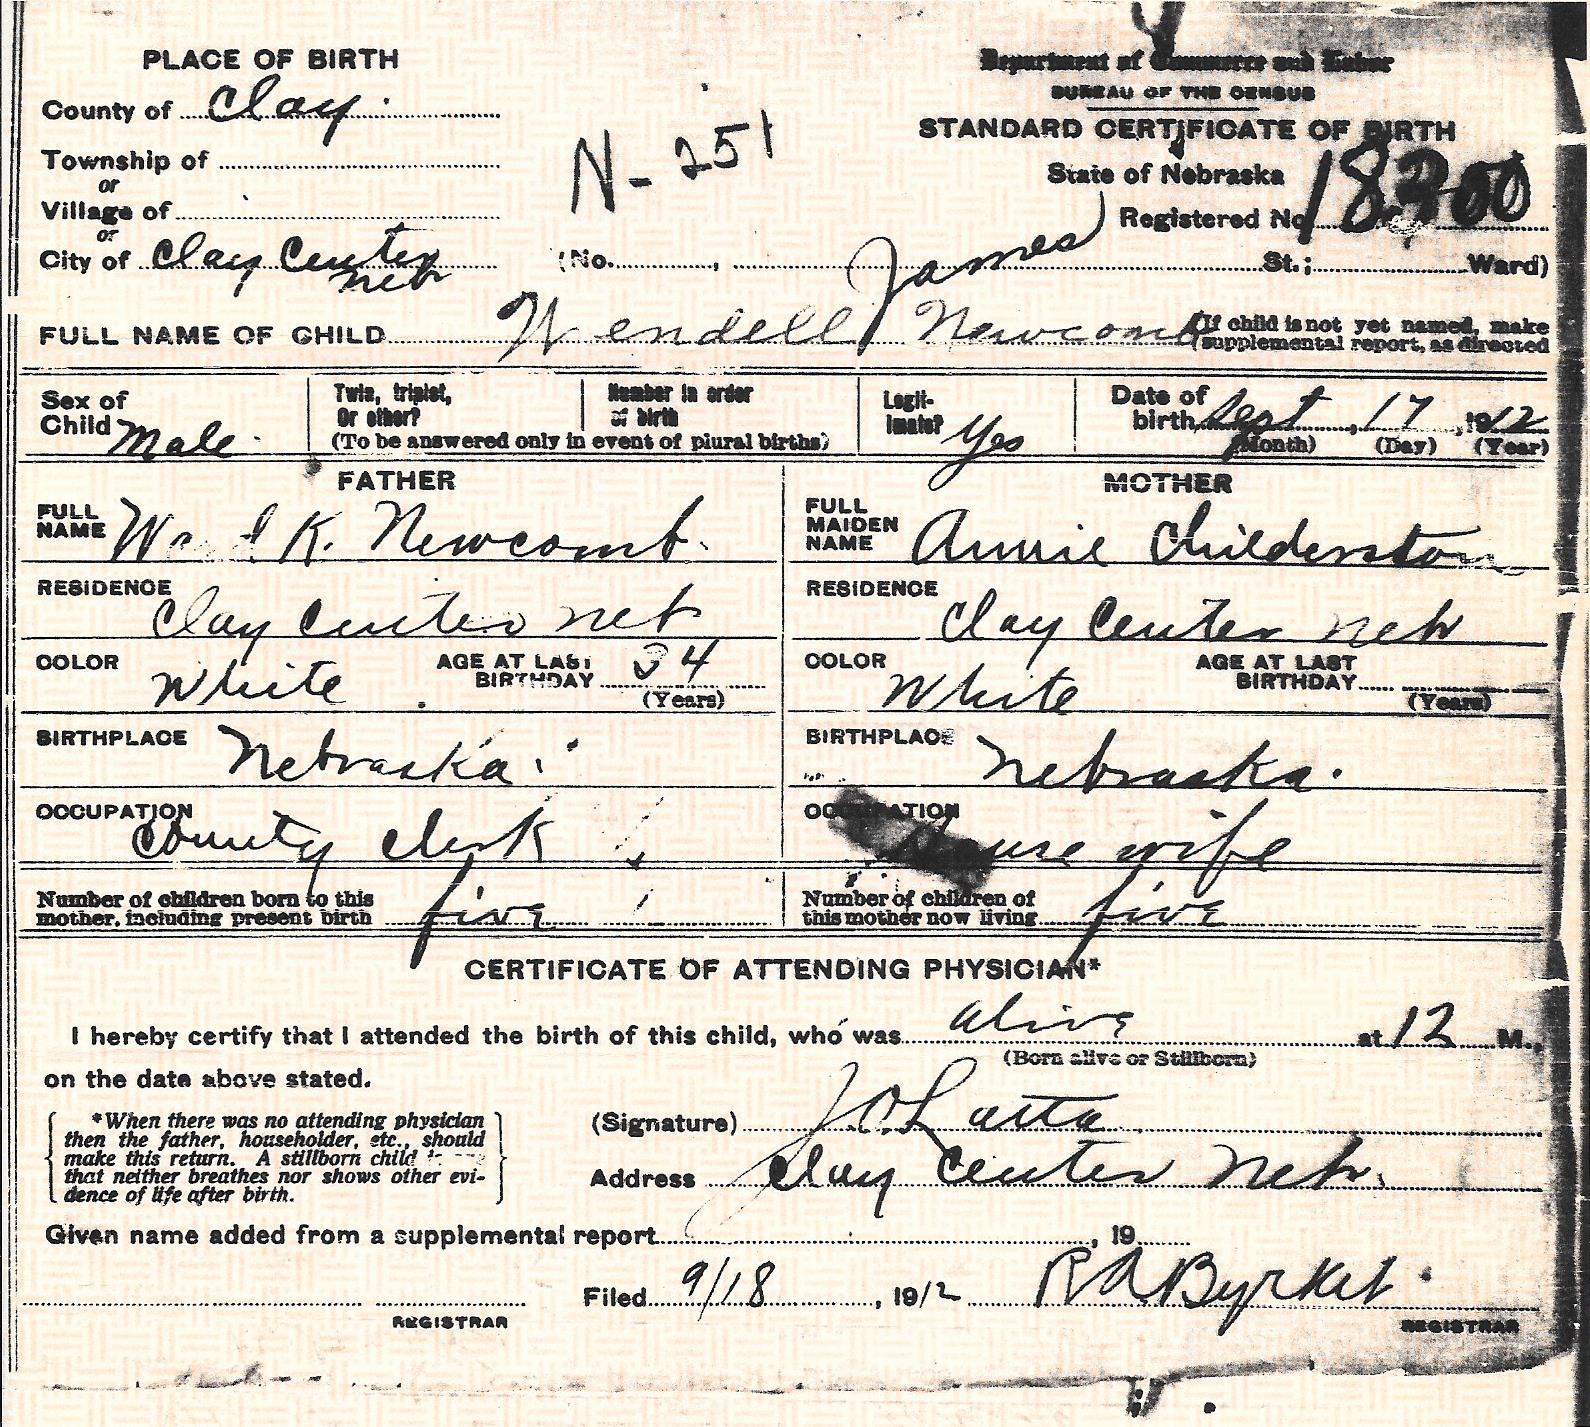 PLACE OF BIRTH
County of Clay
Township of
or
Village of
or
City of Clay Center
Nebr
N-251
Department of Commerce and Labor
BUREAU OF THE CENSUS
STANDARD CERTIFICATE OF BIRTH
State of Nebraska
Registered No.
(No. , St.; Ward)
James
FULL NAME OF CHILD Wendell Newcomb
(If child is not yet named, make
supplemental report, as directed
Sex of
Child Male
Twin, triplet,
Or other?
Number in order
of birth
(To be answered only in event of plural births)
Legit-
imate? Yes
Date of
birth Sept, 17, 1912
(Month) (Day) (Year)
FATHER
FULL
NAME Ward K. Newcomb.
RESIDENCE
Clay Center Neb
COLOR
White
AGE AT LAST
BIRTHDAY 34
(Years)
BIRTHPLACE Nebraska
OCCUPATION
County Clerk
Number of children born to this
mother, including present birth five
MOTHER
FULL
MAIDEN
NAME Annie Childerston
RESIDENCE
Clay Center Neb
COLOR
White
AGE AT LAST
BIRTHDAY
(Years)
BIRTHPLACE Nebraska.
OCCUPATION
House wife
Number of children of
this mother now living five
CERTIFICATE OF ATTENDING PHYSICIAN*
I hereby certify that I attended the birth of this child, who was alive at 12 M.,
(Born alive or Stillborn)
on the date above stated.
*When there was no attending physician
then the father, householder, etc., should
make this return. A stillborn child is one
that neither breathes nor shows other evi-
dence of life after birth.
(Signature) J.O. Latta
Address Clay Center Nebr.
Given name added from a supplemental report , 19
Filed 9/18, 1912 R A Byrket
REGISTRAR
REGISTRAR